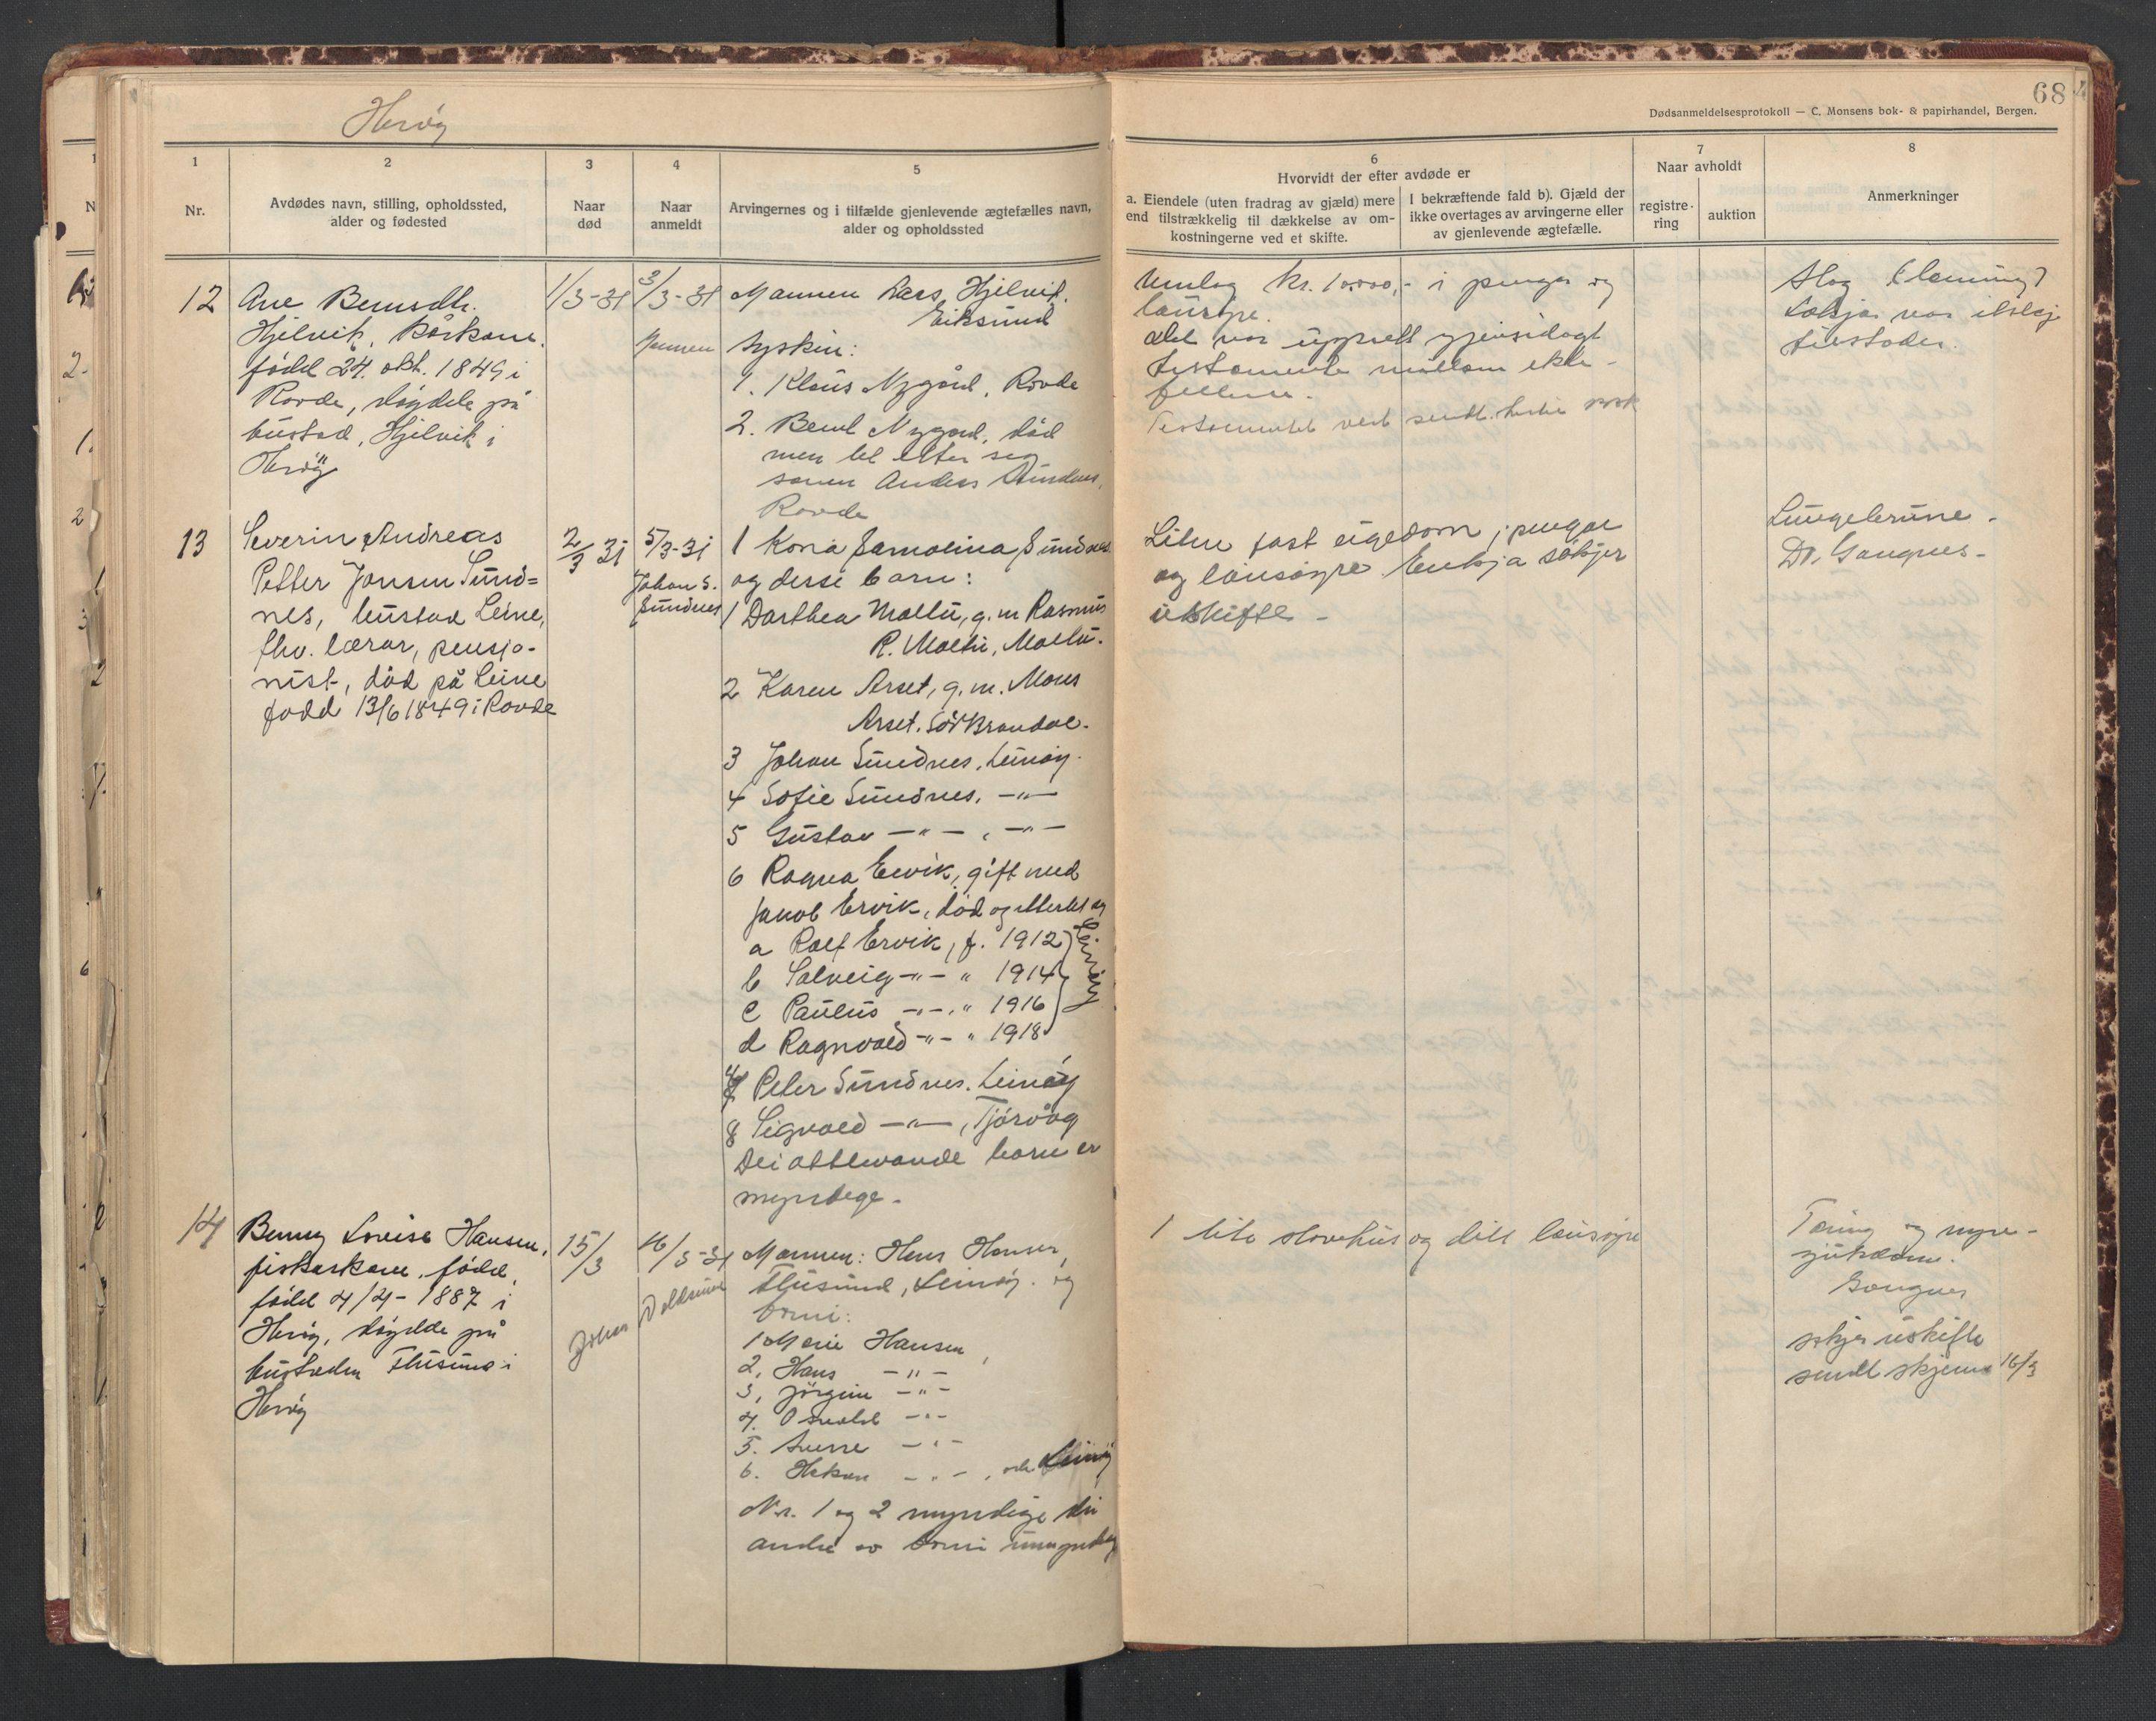 Herøy
68
Dødsanmeldelsesprotokoll — C. Monsens bok- & papirhandel, Bergen.
1
2
3
4
5
6
7
8
Nr.
Avdødes navn, stilling, opholdssted,
alder og fødested
Naar
død
Naar
anmeldt
Arvingernes og i tilfælde gjenlevende ægtefælles navn,
alder og opholdssted
Hvorvidt der efter avdøde er
a. Eiendele (uten fradrag av gjæld) mere
end tilstrækkelig til dækkelse av om-
kostningerne ved et skifte.
I bekræftende fald b). Gjæld der
ikke overtages av arvingerne eller
av gjenlevende ægtefælle.
Naar avholdt
registre-
ring
auktion
Anmerkninger
12
Ane Berntsdtr.
Hjelvik, kårkone.
fødd 24. okt. 1849 i
Rovde, døydde på
bustad, Hjelvik i
Herøy
1/3-31
3/3-31
Mannen
Mannen Lars Hjelvik.
Eiksund
Syskin:
1. Klaus Nygård, Rovde
2. Bernt Nygård, død
men let etter seg
sonen Anders
Rovde
Umlag kr. 10.000,- i pengar og
lausøyre.
Det var upprett gjensidagt
testamente millom ekte-
fellene.
Testamentet vert sendt
Slag (laming)
Lækjar var ikkje
tilstades.
13
Severin Andreas
Petter Jonsen Sund=
nes, bustad Leine,
fhv. lærar, pensjo-
nist, død på Leine
fødd 13/6 1849 i Rovde
2/3 31
5/3-31
Johan S.
Sundnes
1 Kona Jamalina Sundnes
og desse barn:
1 Dorthea Moltu, g. m Rasmus
R. Moltu, Moltu.
2 Karen Arset, g. m. Mons
Arset. Sør Brandal.
3 Johan Sundnes, Leinøy.
4 Sofie Sundnes, —"—
5 Gustav —"— , —"—
6 Ragna Ervik, gift med
Jakob Ervik, død og etterlet seg
a Rolf Ervik, f. 1912
b Solveig —"— " 1914
c Paulus —"— " 1916
d Ragnvald —"— " 1918
Leinøy
7 Peter Sundnes. Leinøy
8 Sigvald —"—, Tjørvåg
Dei attlevande barn er
myndege.
Liten fast eigedom, pengar
og lausøyre. Enkja søkjer
uskifte -
Lungebrune -
Dr. Gangnes -
14
Benny Lovise Hansen,
fiskarkone, fødd,
fødd 4/4- 1887 i
Herøy, døydde på
bustaden Flusund i
Herøy
15/3
16/3-31
Johan Voldsund
Mannen: Hans Hansen,
Flusund, Leinøy. og
born:
1 Marie Hansen,
2. Hans —"—
3. Jørgine —"—
4. Osvald —"—
5. Sverre —"—
6. Håkon —"—, Leinøy
Nr. 1 og 2 myndige dei
andre av borni umyndig
1 lite stovehus og litt lausøyre
Tæring og nyre-
sjukdom.
Gangnes
søkjer uskifte
sendt skjema 16/3